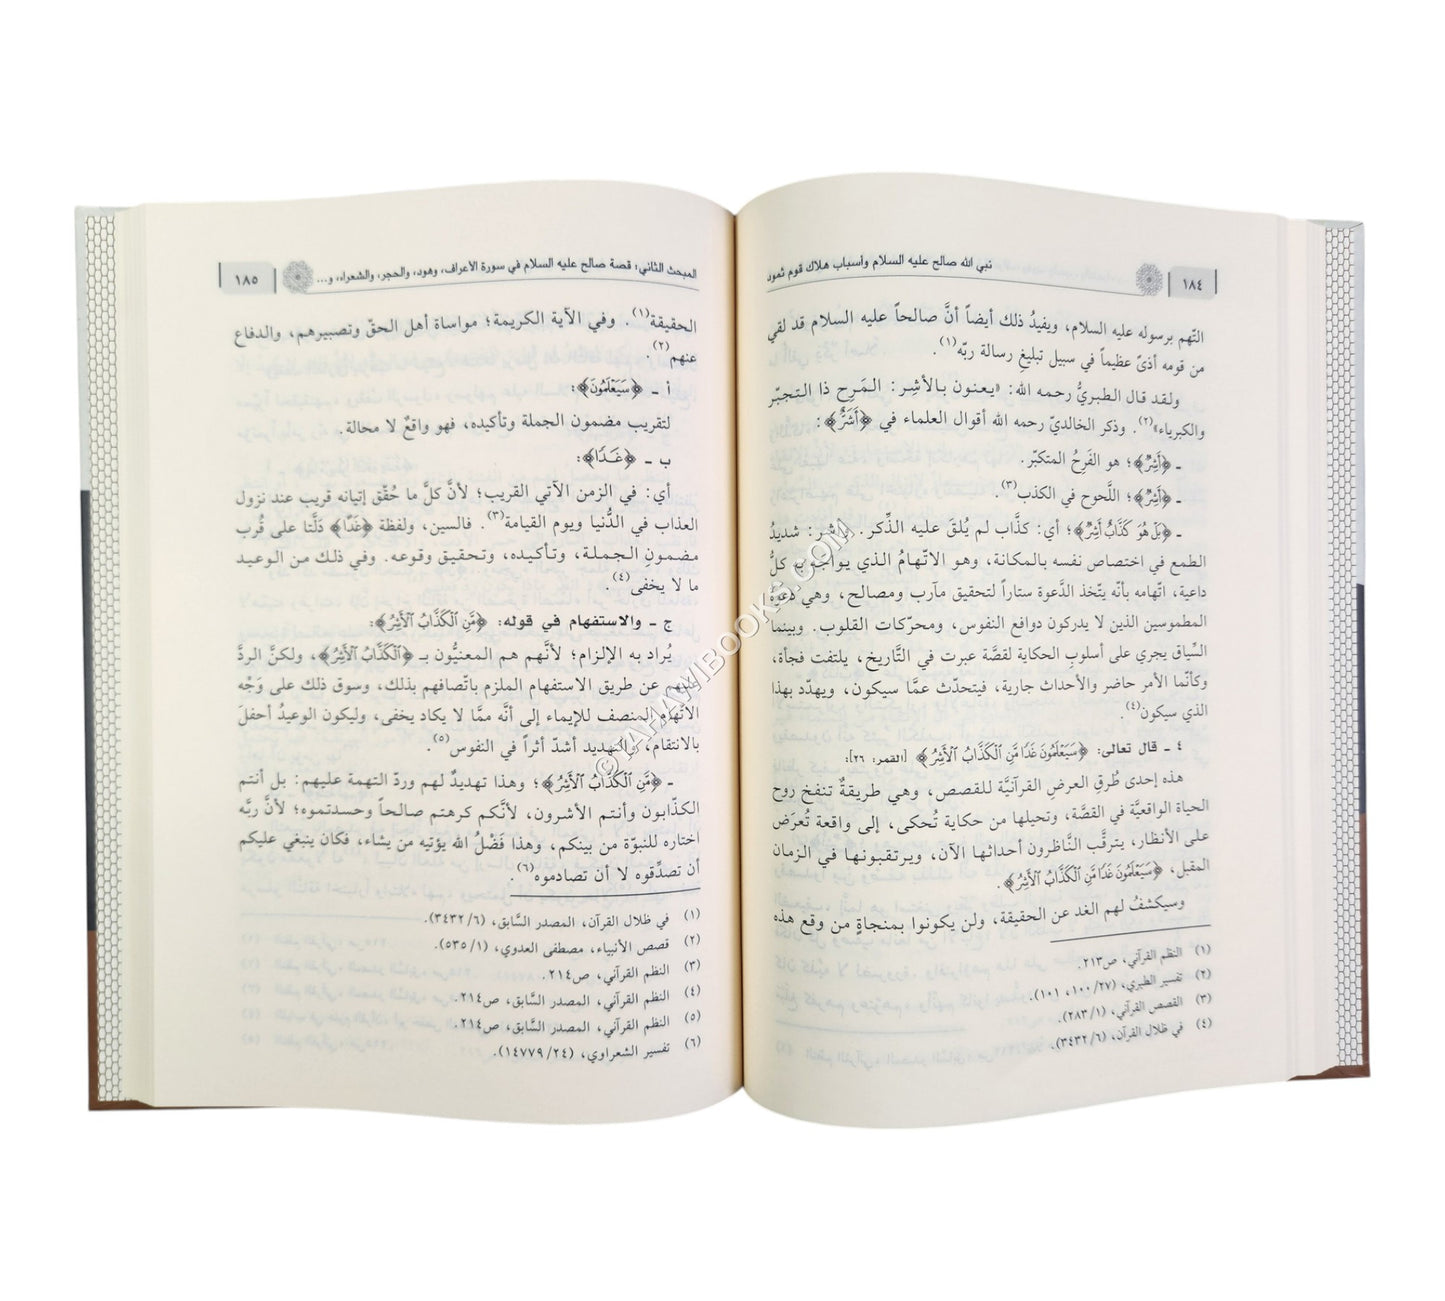 ١٨٤
نبي الله صالح عليه السلام وأسباب هلاك قوم ثمود
التّهم برسوله عليه السلام، ويفيدُ ذلك أيضاً أنَّ صالحاً عليه السلام قد لقي
من قومه أذىً عظيماً في سبيل تبليغِ رسالة ربّه(١).
ولقد قال الطبريُّ رحمه الله: «يعنون بالأشِر: المَرِح ذا التجبّر
والكبرياء»(٢). وذكر الخالديّ رحمه الله أقوال العلماء في ﴿أَشِرٌ﴾:
ـ ﴿أَشِرٌ﴾؛ هو الفَرِحُ المتكبّر.
ـ ﴿أَشِرٌ﴾؛ اللَّحوح في الكذب(٣).
ـ ﴿بَلْ هُوَ كَذَّابٌ أَشِرٌ﴾؛ أي: كذَّاب لم يُلقَ عليه الذِّكر. أشر: شديدُ
الطمع في اختصاص نفسه بالمكانة، وهو الاتّهامُ الذي يواجَه به كلُّ
داعية، اتّهامه بأنّه يتّخذ الدَّعوة ستاراً لتحقيق مآرب ومصالح، وهي دعوة
المطموسين الذين لا يدركون دوافع النفوس، ومحرّكات القلوب. وبينما
السِّياق يجري على أسلوبِ الحكاية لقصَّة عبرت في التَّاريخ، يلتفت فجأة،
وكأنّما الأمر حاضر والأحداث جارية، فيتحدّث عمَّا سيكون، ويهدّد بهذا
الذي سيكون(٤).
٤ ـ قال تعالى: ﴿سَيَعْلَمُونَ غَدًا مَّنِ ٱلْكَذَّابُ ٱلْأَشِرُ﴾ [القمر: ٢٦]:
هذه إحدى طُرقِ العرضِ القرآنيَّة للقصص، وهي طريقةٌ تنفخ روح
الحياة الواقعيَّة في القصَّة، وتحيلها من حكاية تُحكى، إلى واقعة تُعرَض
على الأنظار، يترقَّب النَّاظرون أحداثها الآن، ويرتقبونها في الزمان
المقبل، ﴿سَيَعْلَمُونَ غَدًا مَّنِ ٱلْكَذَّابُ ٱلْأَشِرُ﴾.
وسيكشفُ لهم الغد عن الحقيقة، ولن يكونوا بمنجاةٍ من وقع هذه
(١) النظم القرآني، ص٢١٣.
(٢) تفسير الطبري، (٢٧/ ١٠٠، ١٠١).
(٣) القصص القرآني، (١/ ٢٨٣).
(٤) في ظلال القرآن، (٦/ ٣٤٣٢).
المبحث الثاني: قصة صالح عليه السلام في سورة الأعراف، وهود، والحجر، والشعراء، و...
١٨٥
الحقيقة(١). وفي الآية الكريمة؛ مواساة أهل الحقّ وتصبيرهم، والدفاع
عنهم(٢).
أ ـ ﴿سَيَعْلَمُونَ﴾:
لتقريب مضمون الجملة وتأكيده، فهو واقعٌ لا محالة.
ب ـ ﴿غَدًا﴾:
أي: في الزمن الآتي القريب؛ لأنَّ كلَّ ما حُقّق إتيانه قريب عند نزول
العذاب في الدُّنيا ويوم القيامة(٣). فالسين، ولفظة ﴿غَدًا﴾ دَلَّتا على قُرب
مضمونِ الجملة، وتأكيده، وتحقيق وقوعه. وفي ذلك من الوعيد
ما لا يخفى(٤).
ج ـ والاستفهام في قوله: ﴿مَّنِ ٱلْكَذَّابُ ٱلْأَشِرُ﴾:
يُراد به الإلزام؛ لأنَّهم هم المعنيُّون بـ ﴿ٱلْكَذَّابُ ٱلْأَشِرُ﴾، ولكنَّ الردَّ
عليهم عن طريق الاستفهام الملزم باتّصافهم بذلك، وسوق ذلك على وَجْه
الاتّهام المنصف للإيماء إلى أنّه ممَّا لا يكاد يخفى، وليكون الوعيدُ أحفلَ
بالانتقام، والتهديد أشدّ أثراً في النفوس(٥).
ـ ﴿مَّنِ ٱلْكَذَّابُ ٱلْأَشِرُ﴾؛ وهذا تهديدٌ لهم وردّ التهمة عليهم: بل أنتم
الكذّابون وأنتم الأشرون، لأنَّكم كرهتم صالحاً وحسدتموه؛ لأنَّ ربَّه
اختاره للنبوّة من بينكم، وهذا فَضْلُ الله يؤتيه من يشاء، فكان ينبغي عليكم
أن تصدِّقوه لا أن تصادموه(٦).
(١) في ظلال القرآن، المصدر السَّابق، (٦/ ٣٤٣٢).
(٢) قصص الأنبياء، مصطفى العدوي، (١/ ٥٣٥).
(٣) النظم القرآني، ص٢١٤.
(٤) النظم القرآني، المصدر السَّابق، ص٢١٤.
(٥) النظم القرآني، المصدر السَّابق، ص٢١٤.
(٦) تفسير الشعراوي، (٢٤/ ١٤٧٧٩).
©TAHAWIBOOKS.COM